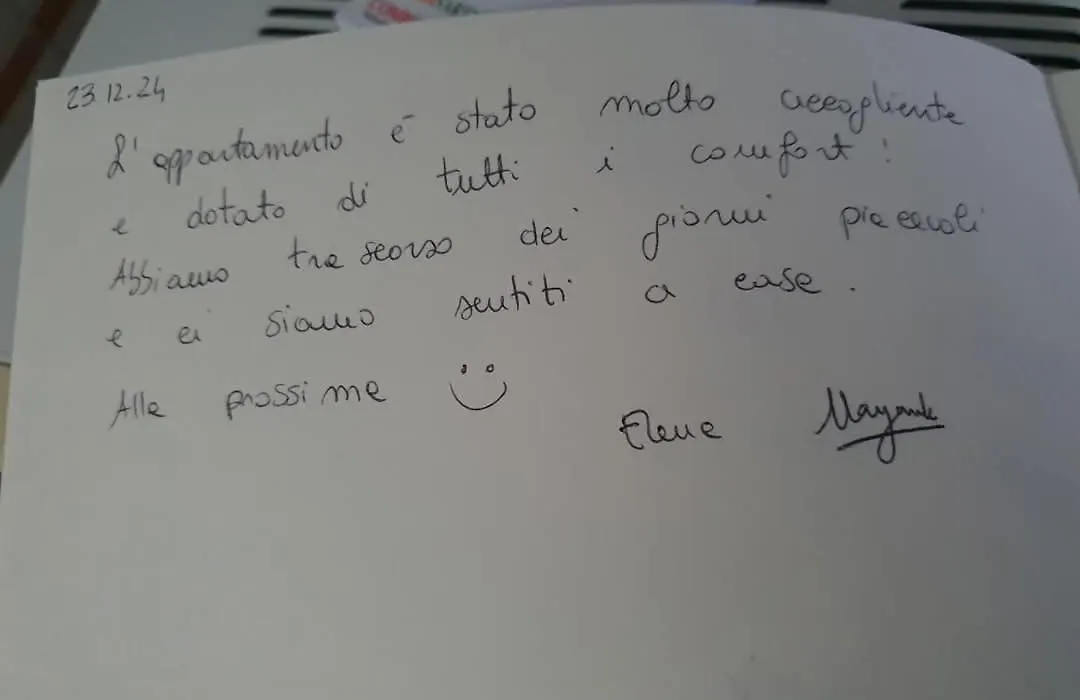 23.12.24
L'appartamento è stato molto accogliente
e dotato di tutti i comfort!
Abbiamo trascorso dei giorni piacevoli
e ci siamo sentiti a casa.
Alla prossima
Elena Mayank